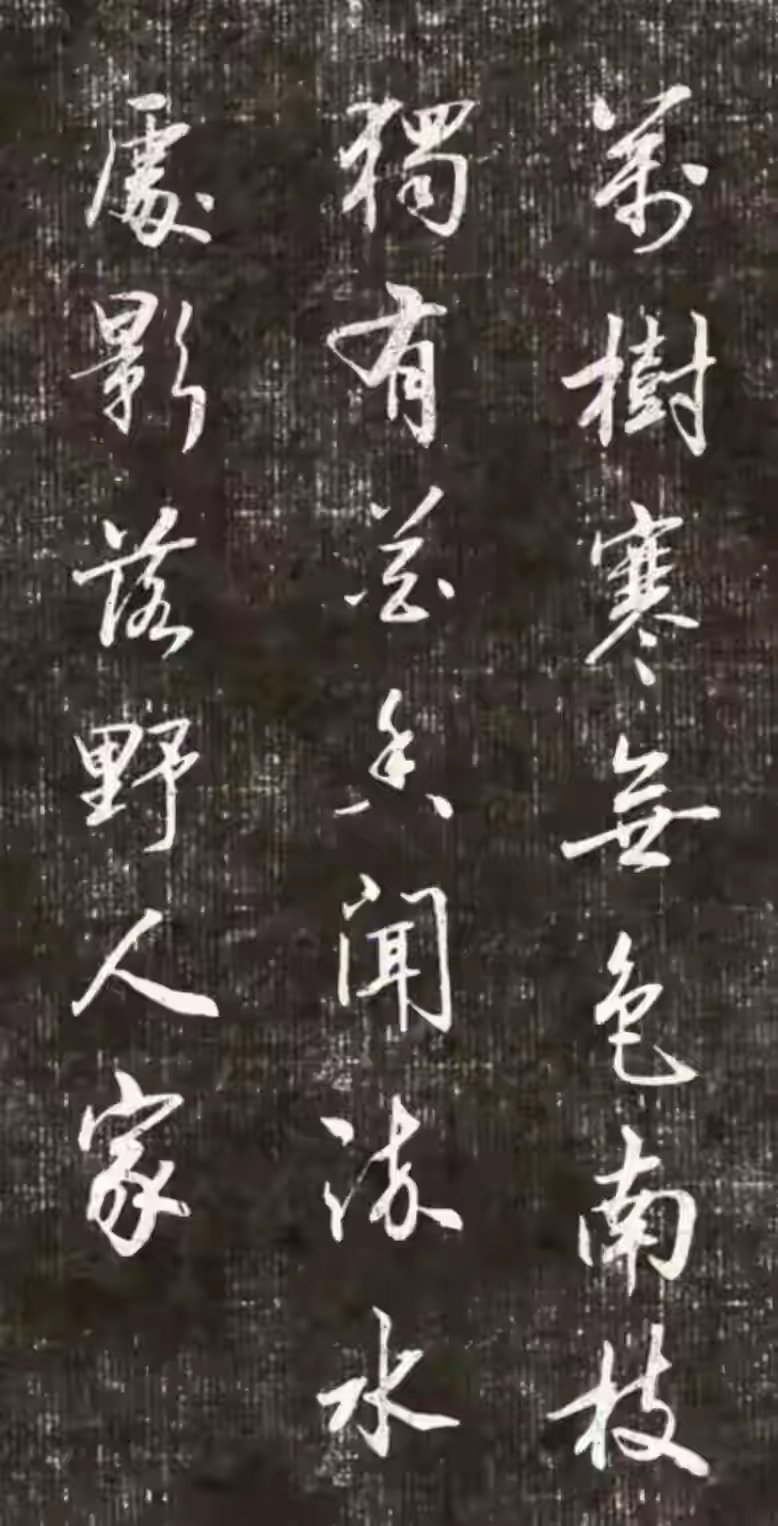 萬樹寒無色南枝
獨有花香聞流水
處影落野人家